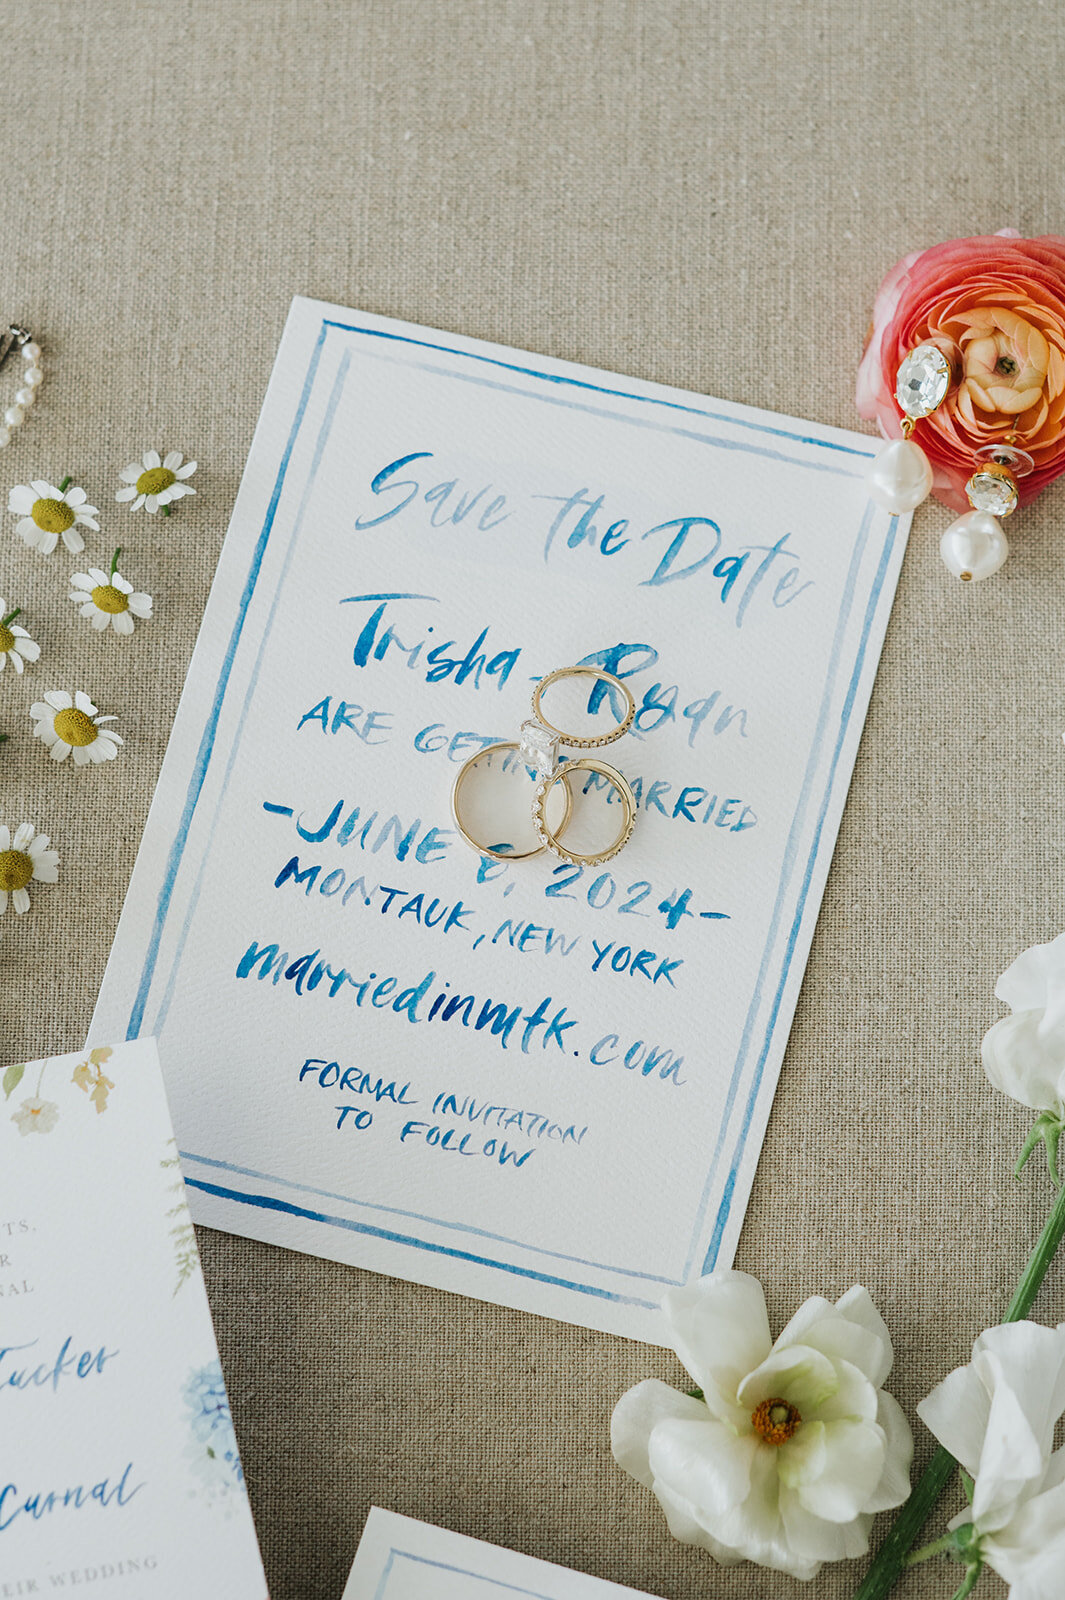 Save the Date
Trisha Ryan
ARE GETTING MARRIED
-JUNE 2024-
MONTAUK, NEW YORK
marriedinmtk.com
FORMAL INVITATION
TO FOLLOW
TS,
R
NAL
Tucker
Curnal
EIR WEDDING